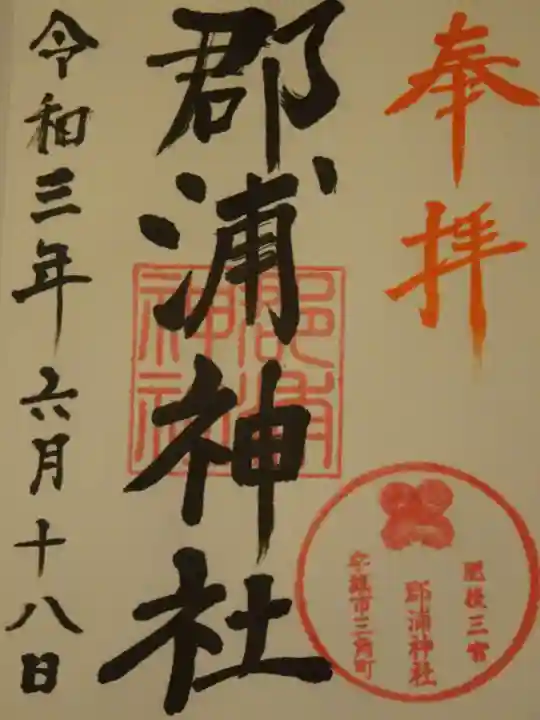 奉拝
郡浦神社
令和三年六月十八日
郡浦
神社
肥後三宮
郡浦神社
宇城市三角町